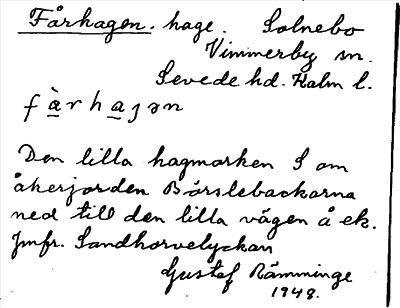 Fårhagen. hage. Solnebo
Vimmerby sn.
Sevede hd. Kalm l.
fàrhaɡən
Den lilla hagmarken S om
åkerjorden Bårslebackarna
ned till den lilla vägen å ek.
Jmfr. Sandhorvelyckan
Gustaf Rämminge
1948.